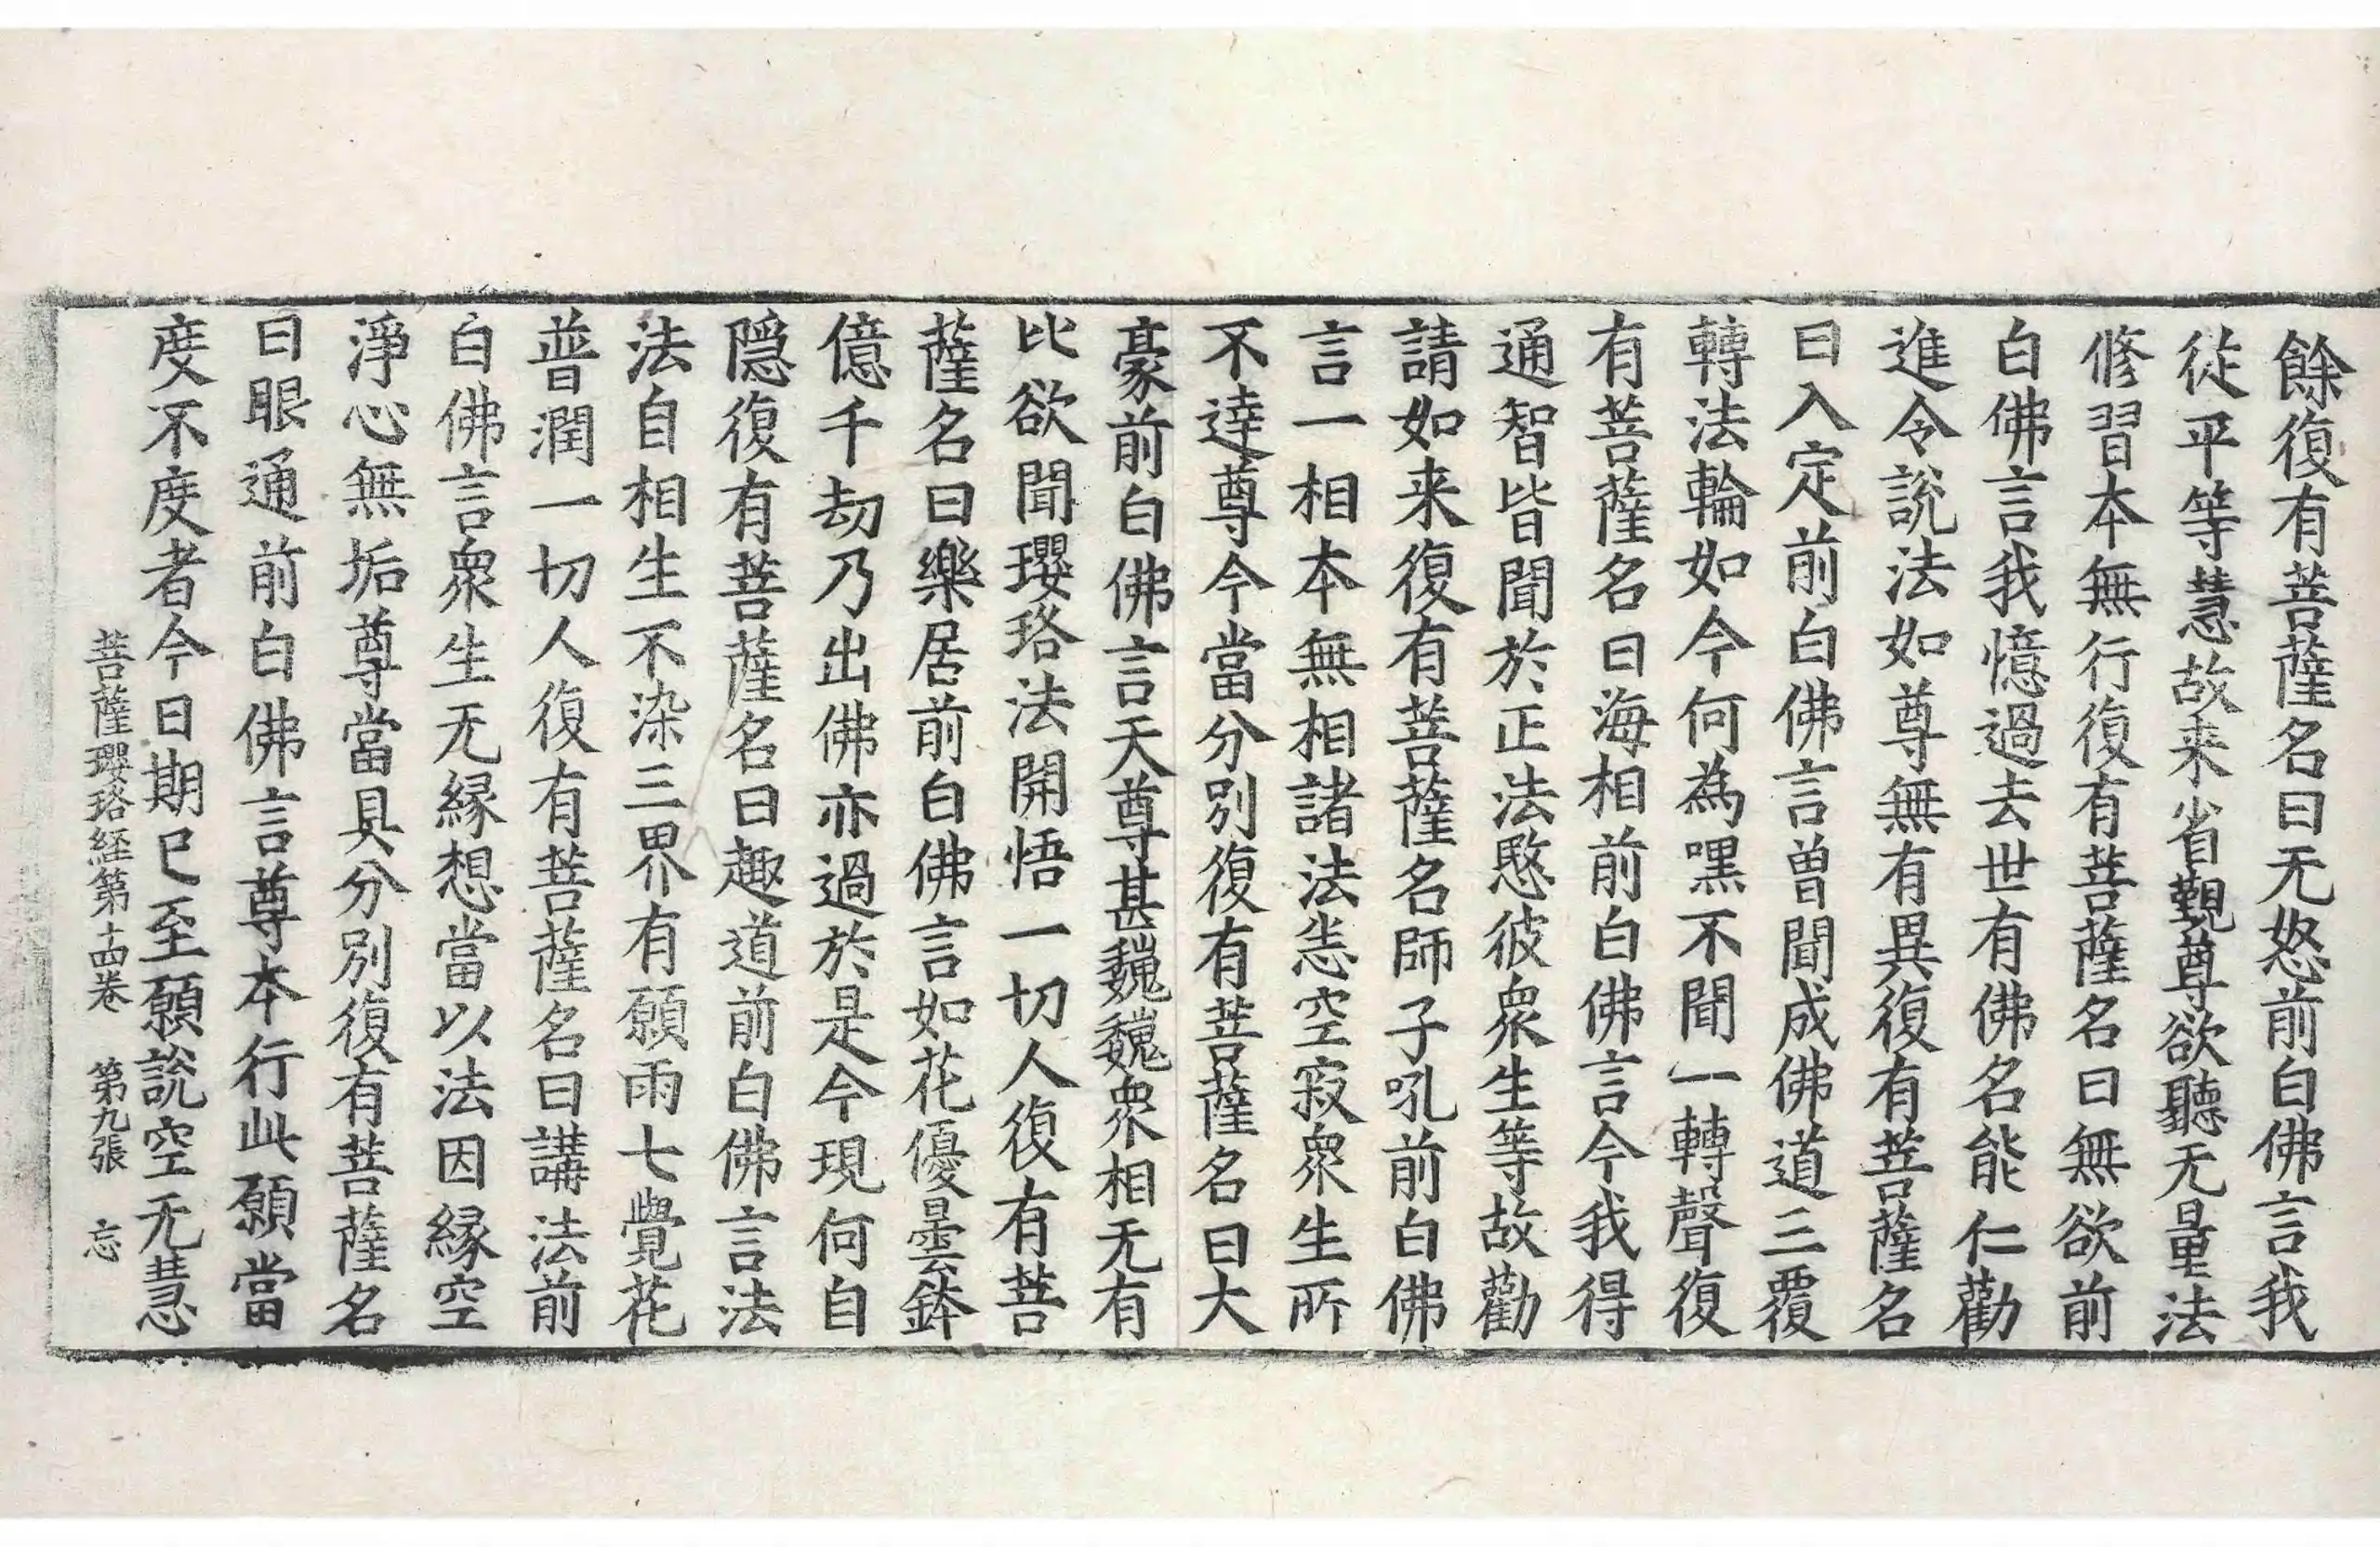 餘復有菩薩名曰无怒前白佛言我
從平等慧故来省覲尊欲聽无量法
修習本無行復有菩薩名曰無欲前
白佛言我憶過去世有佛名能仁勸
進令說法如尊無有異復有菩薩名
曰入定前白佛言曽聞成佛道三覆
轉法輪如今何為嘿不聞一轉聲復
有菩薩名曰海相前白佛言今我得
通智皆聞於正法愍彼衆生等故勸
請如来復有菩薩名師子吼前白佛
言一相本無相諸法恙空寂衆生所
不達尊今當分別復有菩薩名曰大
豪前白佛言天尊甚巍巍衆相无有
比欲聞瓔珞法開悟一切人復有菩
薩名曰樂居前白佛言如花優曇鉢
億千劫乃出佛亦過於是今現何自
隱復有菩薩名曰趣道前白佛言法
法自相生不染三界有願雨七覺花
普潤一切人復有菩薩名曰講法前
白佛言衆生无緣想當以法因緣空
淨心無垢尊當具分別復有菩薩名
曰眼通前白佛言尊本行此願當
度不度者今日期已至願說空无慧
菩薩瓔珞經第十四卷 第九張 忘